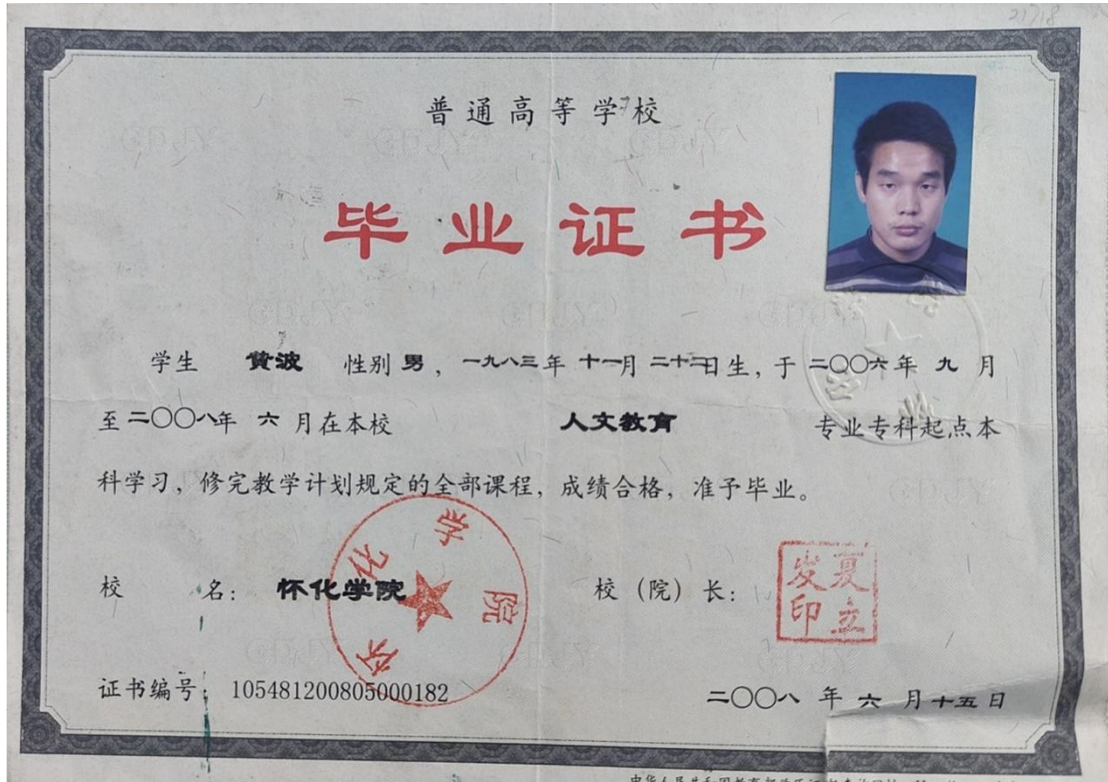 21718
普通高等学校
毕业证书
学生 黄波 性别 男，一九八三年 十一月 二十二日生，于 二〇〇六年 九 月
至二〇〇八年 六 月在本校 人文教育 专业专科起点本
科学习，修完教学计划规定的全部课程，成绩合格，准予毕业。
校 名：怀化学院 校（院）长：
夏立发印
怀化学院
证书编号：105481200805000182
二〇〇八 年 六 月 十五 日